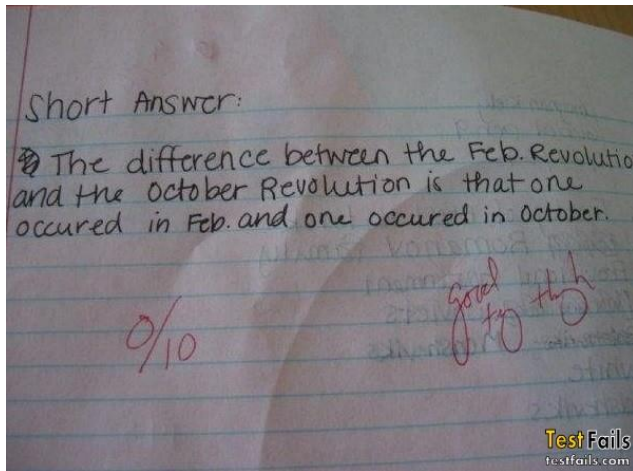 Short Answer:
The difference between the Feb. Revolutio
and the October Revolution is that one
occured in Feb. and one occured in October.
0/10
good
try though
Test Fails
testfails.com